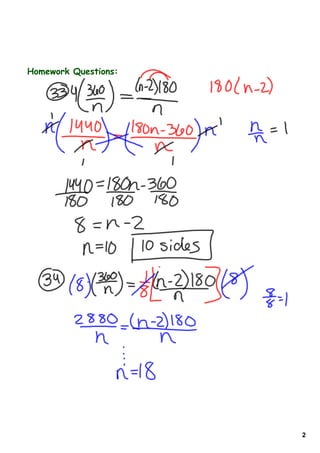 Homework Questions:
33 4(360/n) = (n-2)180/n 180(n-2)
1 n(1440/n) = (180n-360/n) n 1 n/n = 1
1 1
1440/180 = 180n/180 - 360/180
8 = n - 2
n=10 10 sides
34 (8)(360/n) = 1/8[(n-2)180/n](8) 8/8=1
2880/n = (n-2)180/n
⋮
n=18
2